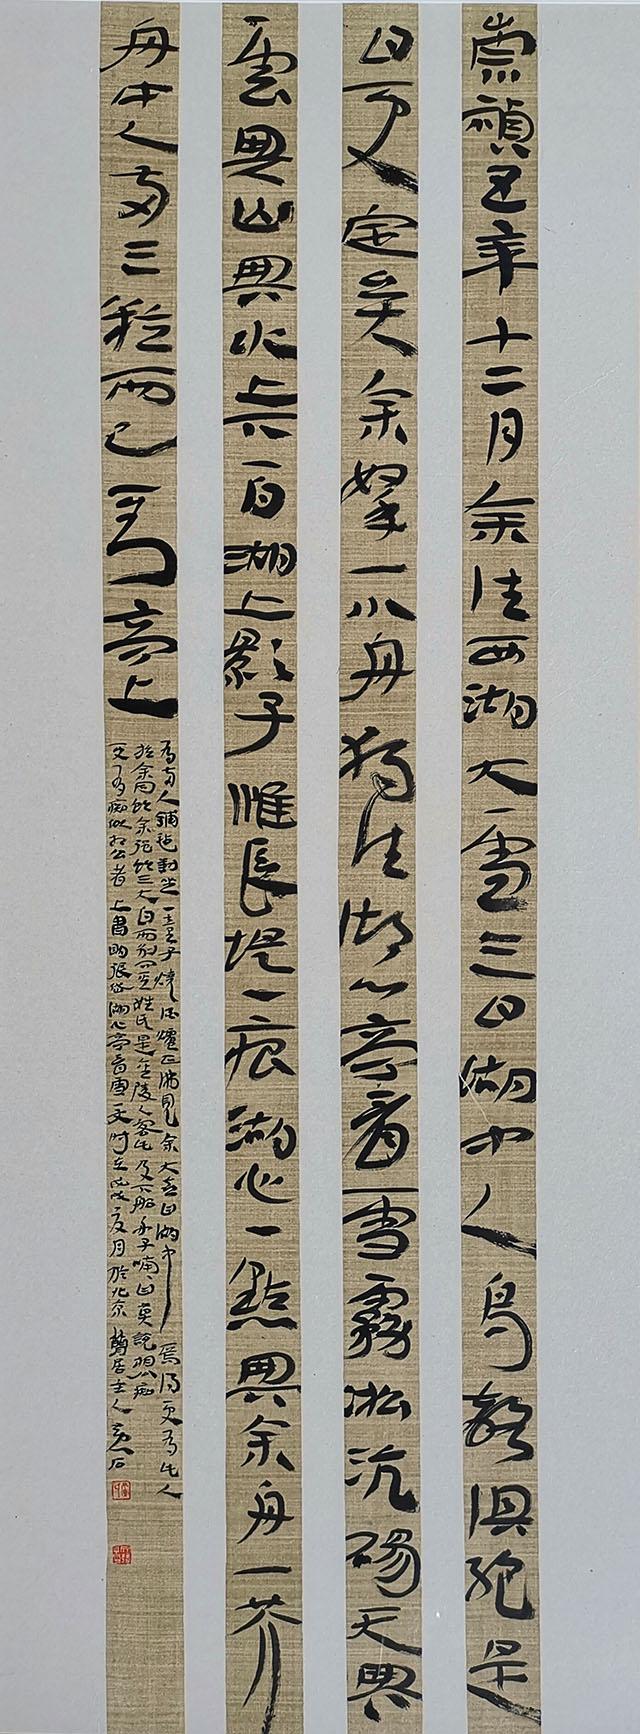 崇禎五年十二月余住西湖大雪三日湖中人鳥聲俱絕是
日更定矣余拏一小舟獨往湖心亭看雪霧凇沆碭天與
雲與山與水上下一白湖上影子惟長堤一痕湖心一點與余舟一芥
舟中人兩三粒而已到亭上
有兩人鋪氈對坐一童子燒酒爐正沸見余大喜曰湖中焉得更有此人
拉余同飲余強飲三大白而別問其姓氏是金陵人客此及下船舟子喃喃曰莫說相公痴
更有痴似相公者上書明張岱湖心亭看雪一文時在戊戌夏月於北京